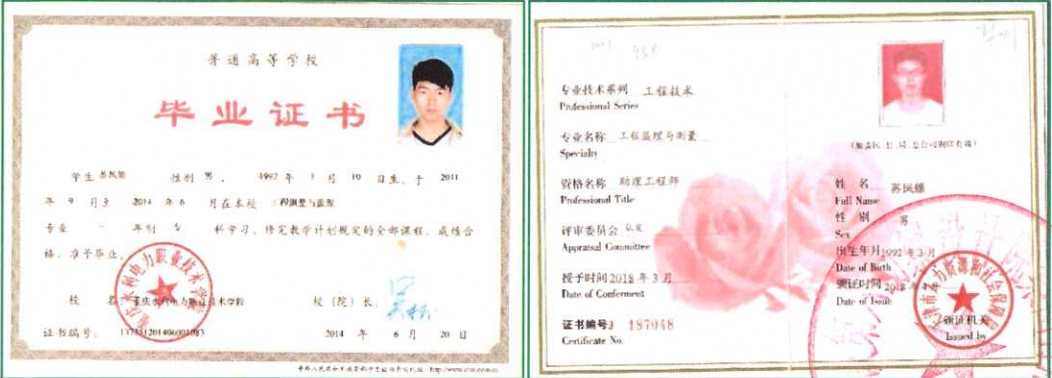 普通高等学校
毕业证书
学生 性别 男 , 1992 年 3 月 10 日生, 于 2011
年 9 月至 2014 年 6 月在本校 工程测量与监理
专业 年制 专 科学习, 修完教学计划规定的全部课程, 成绩合
格, 准予毕业。
校 名: 重庆水利电力职业技术学院 校 (院) 长:
证书编号: 2014 年 6 月 20 日
专业技术系列 工程技术
Professional Series
专业名称 工程监理与测量
Specialty
资格名称 助理工程师
Professional Title
评审委员会 认定
Appraisal Committee
授予时间 2018 年 3 月
Date of Conferment
证书编号J 187048
Certificate No.
姓 名
Full Name
性 别 男
Sex
出生年月 1992 年 3 月
Date of Birth
颁证时间 2018 年
Date of Issue
颁证机关
Issued by